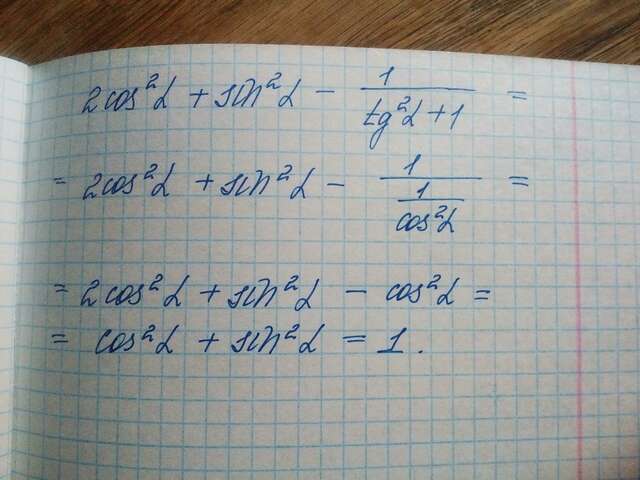 2cos²α + sin²α − 1/(tg²α + 1) =
= 2cos²α + sin²α − 1/(1/cos²α) =
= 2cos²α + sin²α − cos²α =
= cos²α + sin²α = 1.